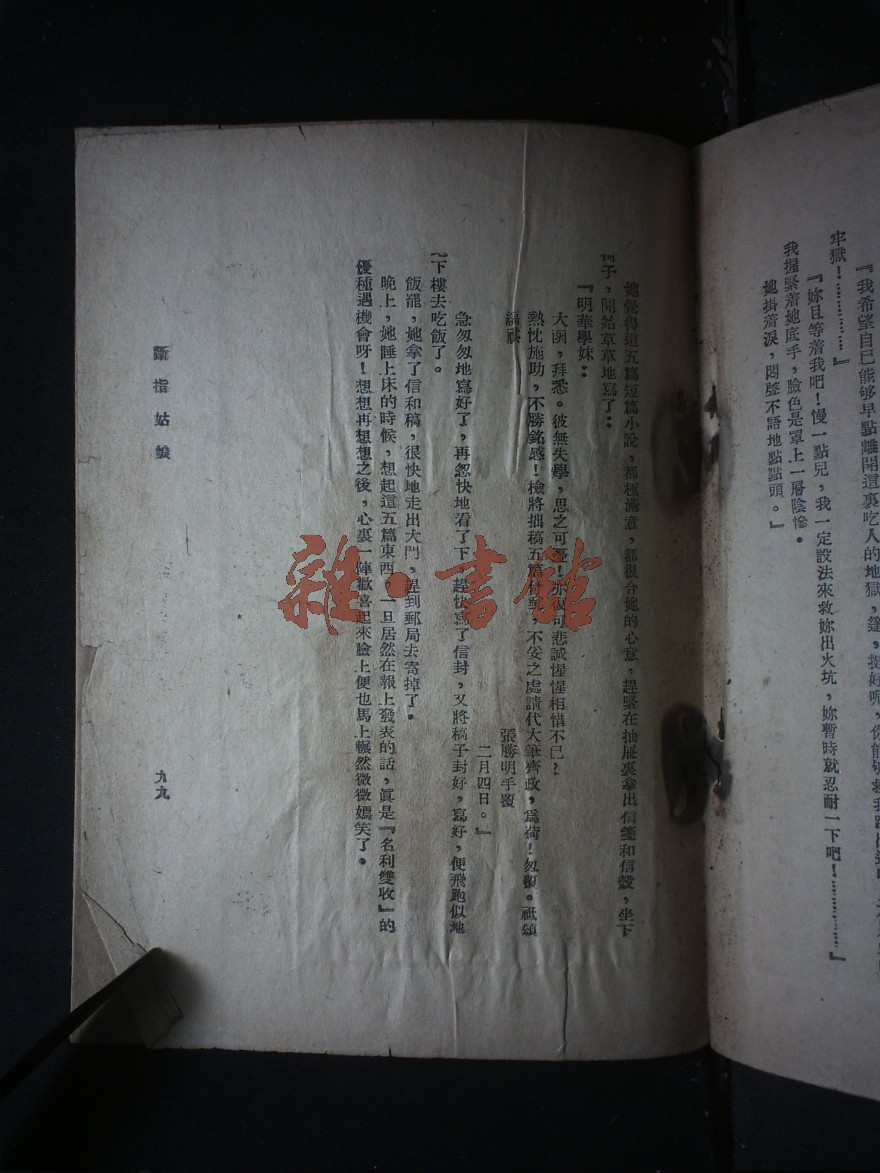 『我希望自已能够早點離開這裏吃人的地獄，
牢獄！……………』
『妳且等着我吧！慢一點兒，我一定設法來救妳出火坑，妳暫時就忍耐一下吧！…………』
我握緊着她底手，臉色是罩上一層陰慘。
她掛着淚，悶聲不語地點點頭。』
她覺得這五篇短篇小說，都極滿意，都很合她的心意，趕緊在抽屜裏拿出信箋和信殼，坐下
子，開始草草地寫了：
『明華學妹：
大函，拜悉。彼無失學，思之可憂！亦復可悲誠惺惺相惜不已！
熱忱施助，不勝銘感！檢將拙稿五篇付郵，不妥之處請代大筆齊政，爲荷！匆覆。祇頌
編祺
張勝明手覆
二月四日。』
急匆匆地寫好了，再忽快地看了下，趕快寫了信封，又將稿子封好，寫好，便飛跑似地
下樓去吃飯了。
飯罷，她拿了信和稿，很快地走出大門，趕到郵局去寄掉了。
晚上，她睡上床的時候，想起這五篇東西，一旦居然在報上發表的話，眞是『名利雙收』的
優種遇機會呀！想想再想想之後，心裏一陣歡喜起來臉上便也馬上囅然微微嫣笑了。
斷指姑娘
九九
雜·書館